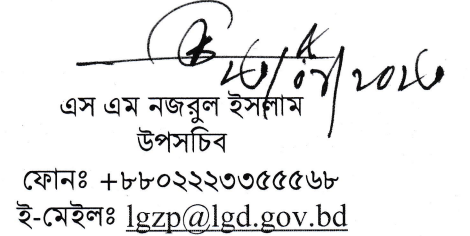 এস এম নজরুল ইসলাম
উপসচিব
ফোনঃ +৮৮০২২২৩৩৫৫৫৬৮
ই-মেইলঃ lgzp@lgd.gov.bd